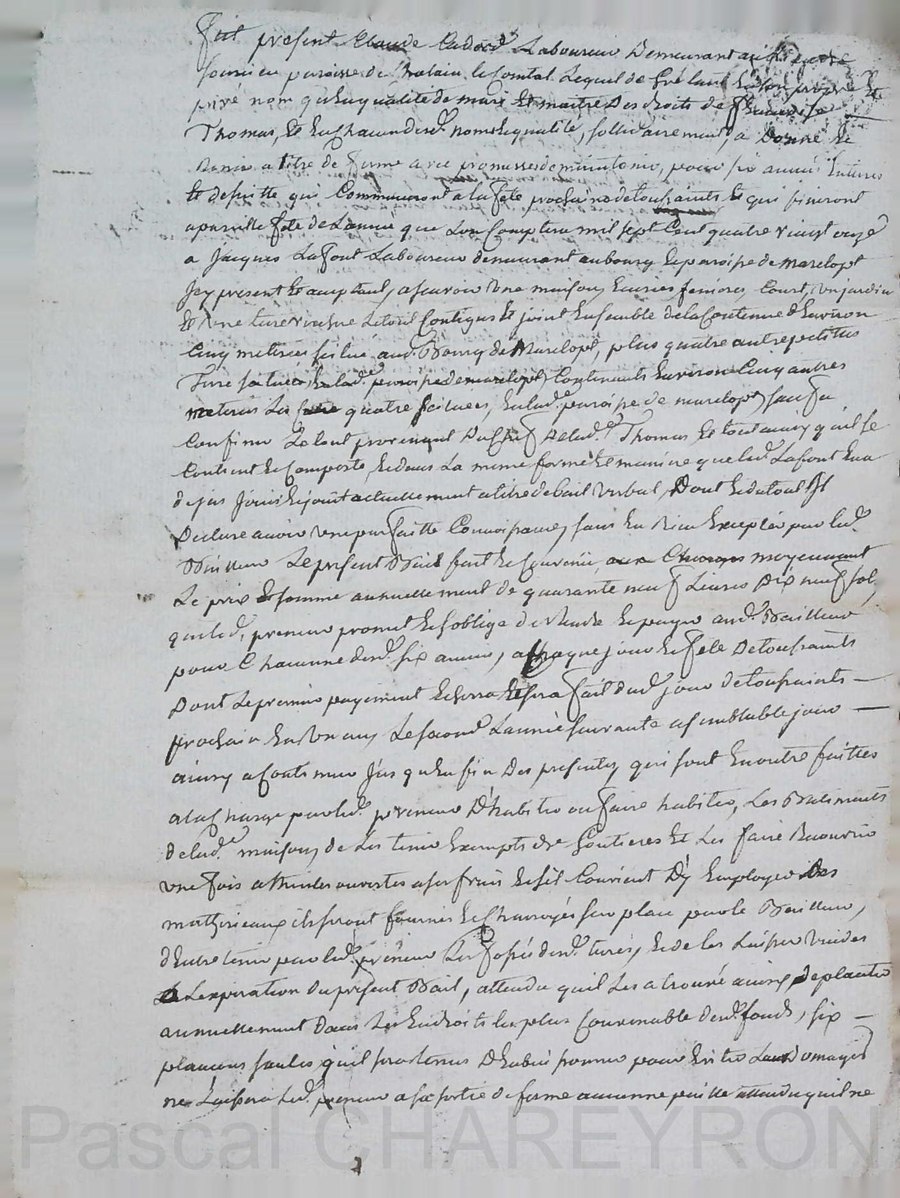 Fut présent Claude Cadord Laboureur Demeurant au
paroisse de Chalain le Comtal Lequel de Gré tant En son propre Et
privé nom qu'En qualité de mari Et maitre Des droits de
Thomas, Et En Chacun desd. noms Et qualité, sollidairement, a Donné Et
a titre de ferme avec promesse de maintenir, pour six année Entieres
Et de suitte qui Commenceront a la fete prochaine de toussaints Et qui finiront
a pareille fete de L'année que L'on Comptera mil sept Cent quatre vingt onze
a Jacques Lafont Laboureur demeurant au bourg Et paroisse de Marclopt
Icy present Et acceptant, a scavoir Une maison, Ecuries, Court, Un jardin
Et Une terre Le tout Contigus Et joint Ensemble de la Contenue d'Environ
Cinq meterées située aud. Bourg de Marclopt, plus quatre autre petittes
Terre situées, En lad.e paroisse de marclopt Contenants Environ Cinq autres
meterées Les quatre scituées, En lad.e paroisse de marclopt, sauf a
Confiner Le tout provenant Du Chef De lad.e Thomas Et tout ainsy qu'il se
Contient Et Comporte, Et dans La meme forme Et maniere que led. Lafont En a
dejas Joui Et jouit actuellement a titre de bail verbal, Dont Et du tout Il
Declare avoir Une parfaitte Connoissance, sans En Rien Excepter par led.
Bailleur Le présent Bail fait Et Convenu, moyennant
Le prix Et somme annuellement de quarante neuf Livres Dix neuf sols,
que led. preneur promet Et s'oblige de Rendre Et payer aud. Bailleur
pour Chacunne desd. six années, a Chaque jour Et fete De toussaints
Dont Le premier payement Et sera fait dud. jour de toussaints
prochain En Un an, Le second L'année suivante a semblable jour
ainsy a Continuer Jus qu'En fin Des presentes, qui sont En outre faittes
a la Charge par led. preneur D'habiter ou faire habiter, Les Batiments
de lad.e maison, de Les tenir Exempts de Goutieres Et Les faire Recouvrir
une fois a tuiles ouvertes a ses frais Et s'il Convient D'y Employer Des
matheriaux ils seront fournis Et Charroyés sur place par le Bailleur,
d'Entretenir par led. preneur Les fossés desd. terres, Et de les Laisser vuides
a L'expiration du présent Bail, attendu qu'il Les a trouvé ainsy, De planter
annuellement Dans Les Endroits les plus Convenable desd. fonds, six
plançons saules qu'il sera tenus D'habiller pour Eviter Les domages,
ne Laissera Led. preneur a sa sortie de ferme aucunne paille attendu qu'il ne
Pascal CHAREYRON